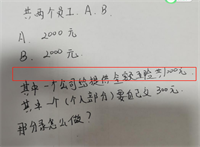 共两个员工. A. B.
A. 2000 元
B. 2000 元.
其中一个公司给提供全额五险共1000元.
其中一个(个人部分)要自己交300元.
那分录怎么做?